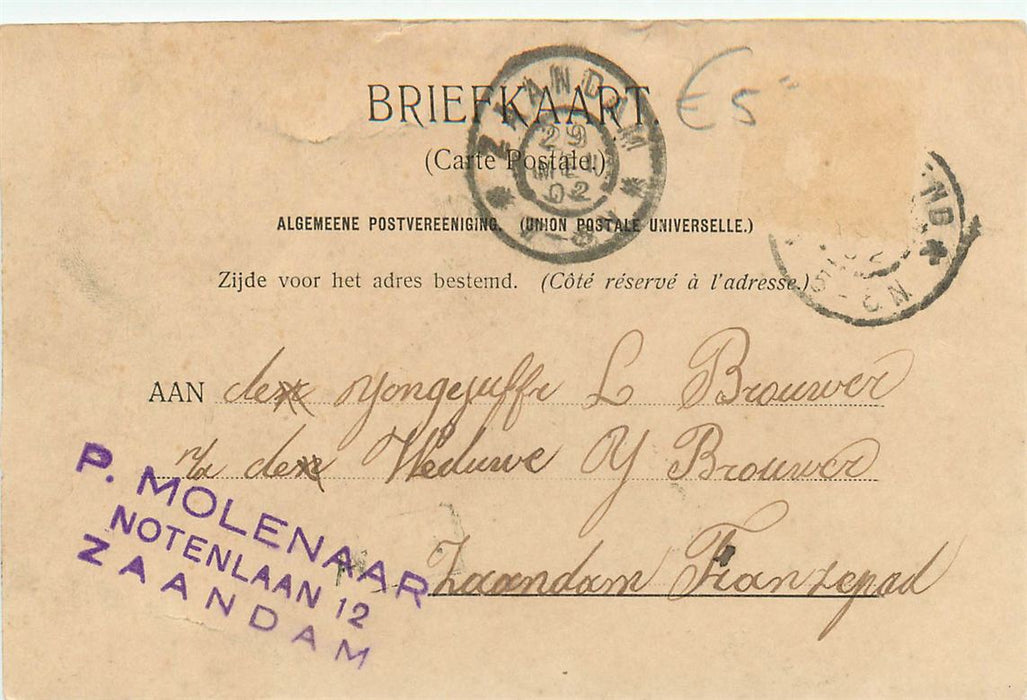 BRIEFKAART.
€ 5
(Carte Postale.)
ZAANDAM
29
MEI
02
7-8V
ALGEMEENE POSTVEREENIGING. (UNION POSTALE UNIVERSELLE.)
Zijde voor het adres bestemd. (Côté réservé à l'adresse.)
AAN den Yongejuffr L Brouwer
den Weduwe Y Brouwer
Zaandam Franzepad
P. MOLENAAR
NOTENLAAN 12
ZAANDAM